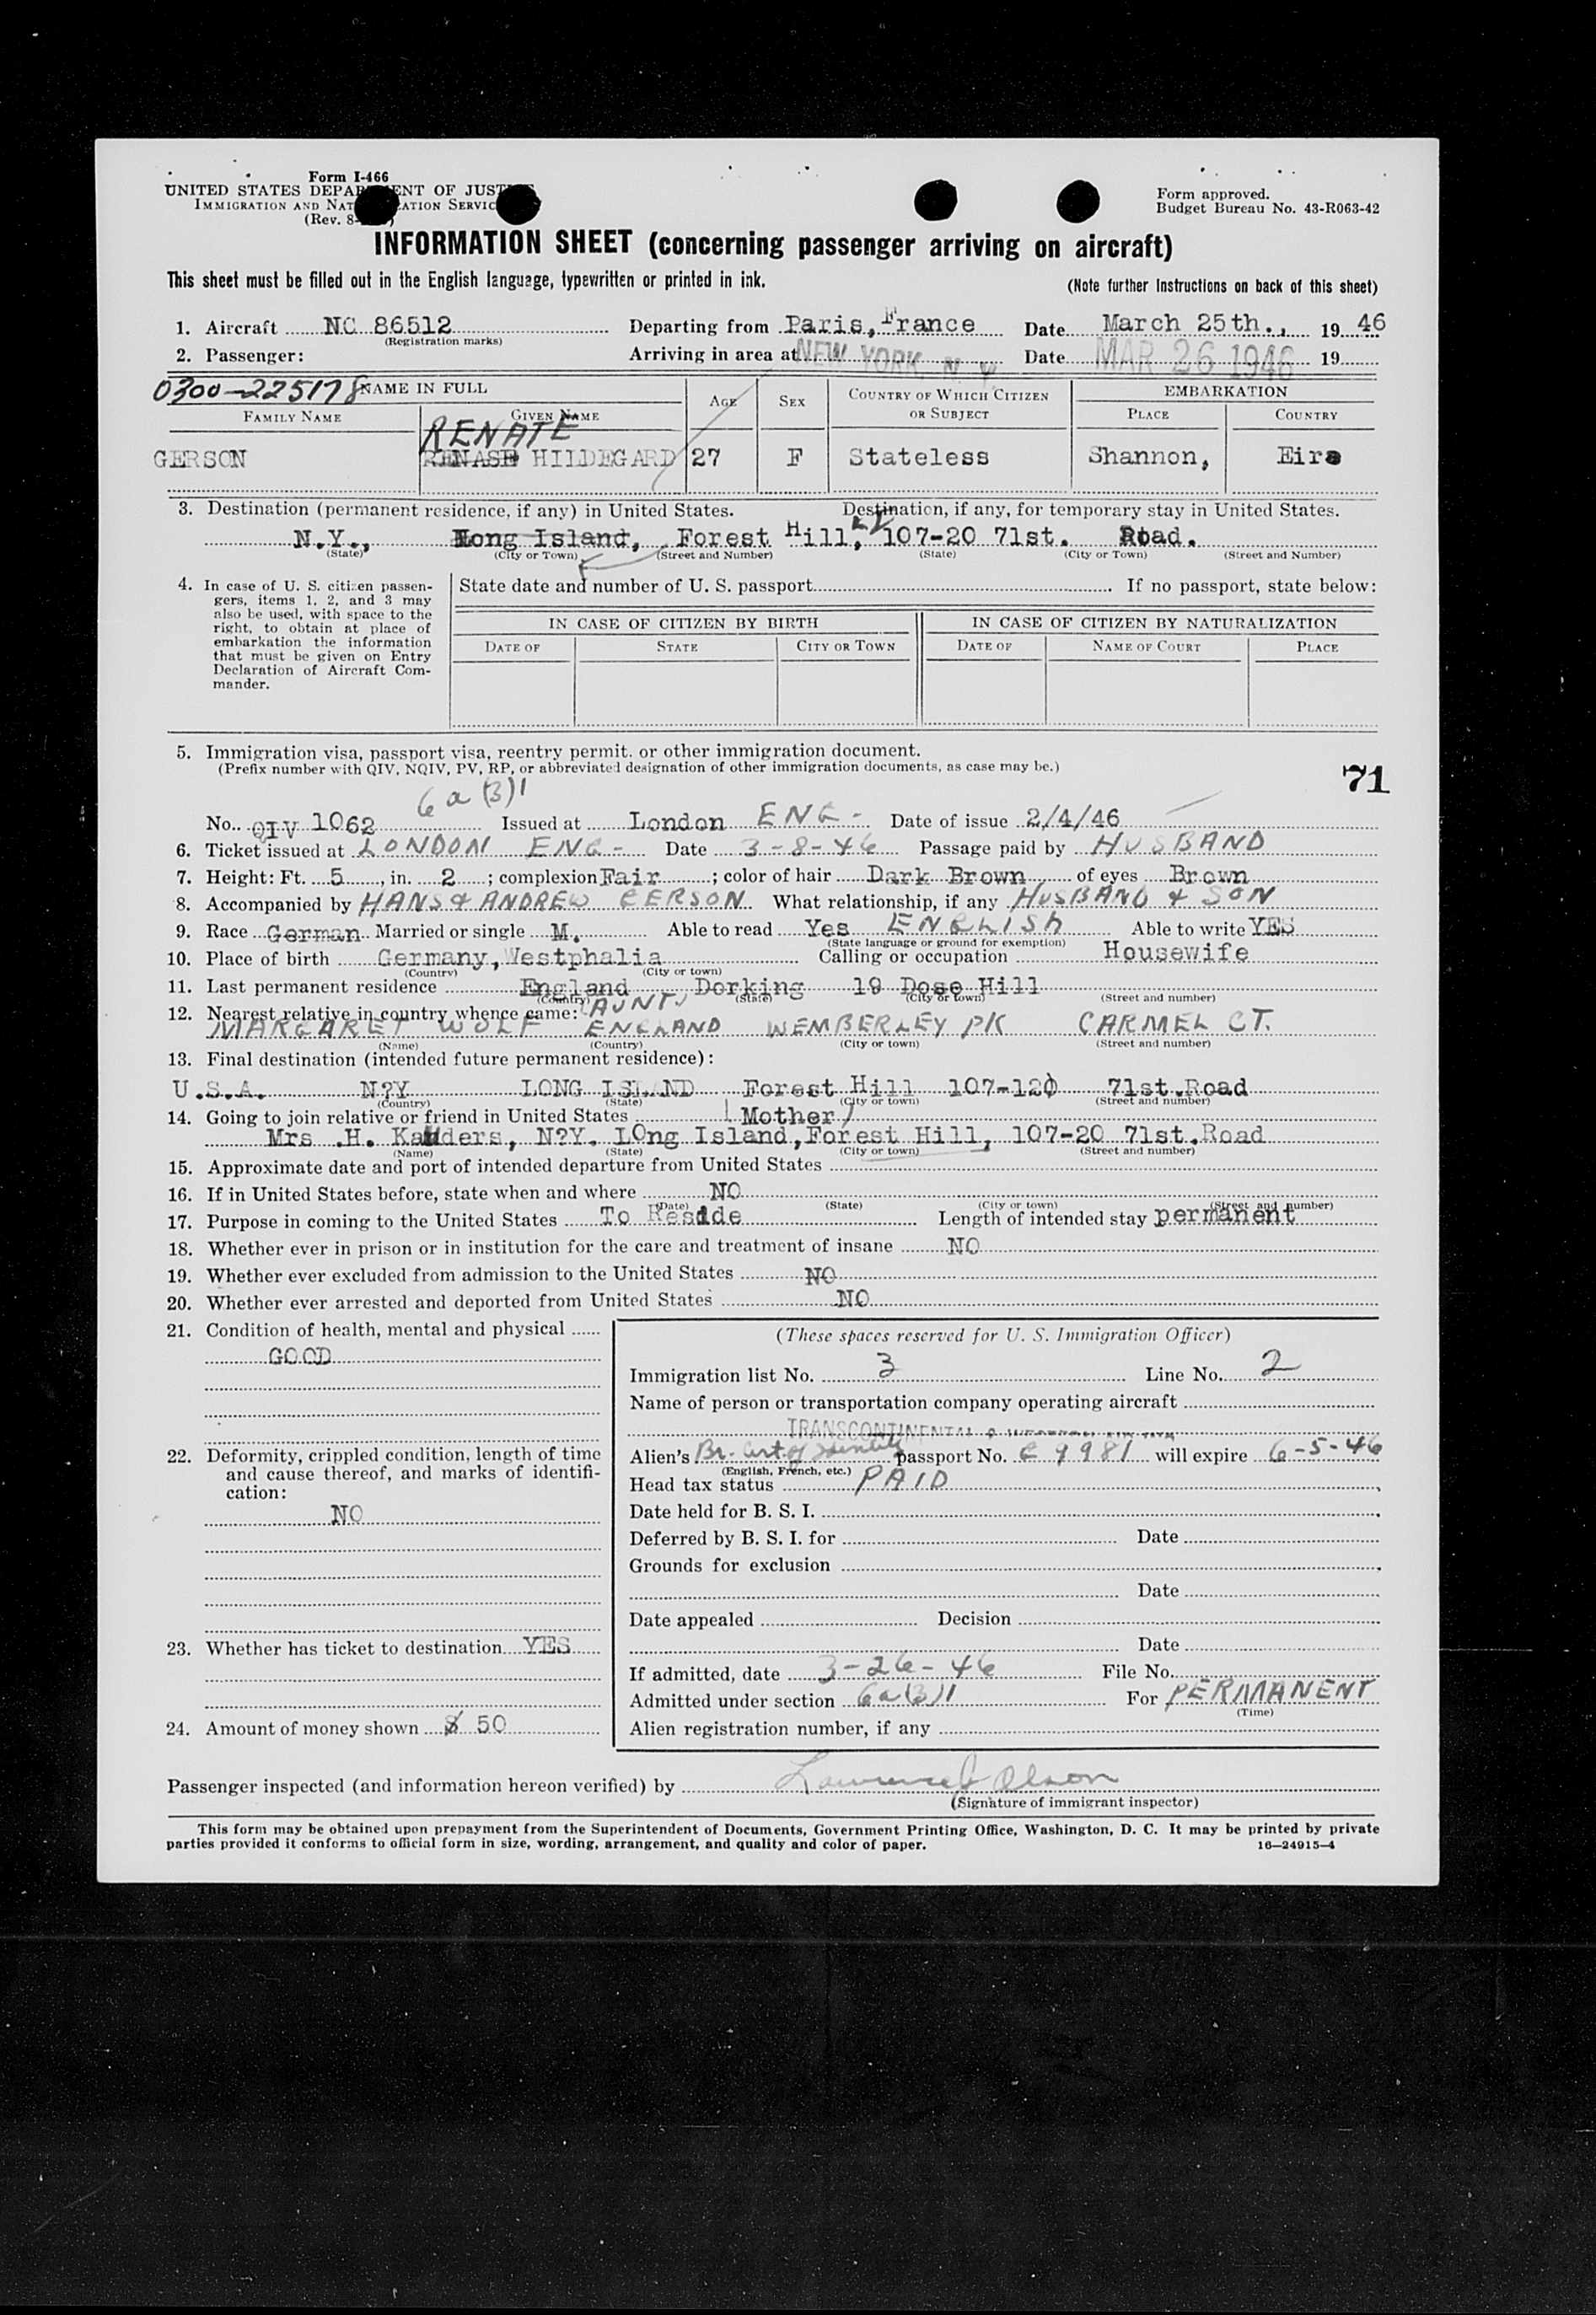 Form I-466
UNITED STATES DEPARTMENT OF JUSTICE
IMMIGRATION AND NATURALIZATION SERVICE
(Rev. 8-
Form approved.
Budget Bureau No. 43-R063-42
INFORMATION SHEET (concerning passenger arriving on aircraft)
This sheet must be filled out in the English language, typewritten or printed in ink. (Note further Instructions on back of this sheet)
1. Aircraft NC 86512 Departing from Paris, France Date March 25th., 19 46
(Registration marks)
2. Passenger: Arriving in area at NEW YORK, N. Y. Date MAR 26 1946 19
0300-225178 NAME IN FULL AGE SEX COUNTRY OF WHICH CITIZEN OR SUBJECT EMBARKATION
FAMILY NAME GIVEN NAME PLACE COUNTRY
RENATE
GERSON RENASE HILDEGARD 27 F Stateless Shannon, Eire
3. Destination (permanent residence, if any) in United States. Destination, if any, for temporary stay in United States.
N.Y., Long Island, Forest Hill, 107-20 71st. Road.
(State) (City or Town) (Street and Number) (State) (City or Town) (Street and Number)
4. In case of U. S. citizen passengers, items 1, 2, and 3 may also be used, with space to the right, to obtain at place of embarkation the information that must be given on Entry Declaration of Aircraft Commander.
State date and number of U. S. passport If no passport, state below:
IN CASE OF CITIZEN BY BIRTH IN CASE OF CITIZEN BY NATURALIZATION
DATE OF STATE CITY OR TOWN DATE OF NAME OF COURT PLACE
5. Immigration visa, passport visa, reentry permit, or other immigration document.
(Prefix number with QIV, NQIV, PV, RP, or abbreviated designation of other immigration documents, as case may be.)
71
6a(3)1
No. QIV 1062 Issued at London ENG- Date of issue 2/4/46
6. Ticket issued at LONDON ENG- Date 3-8-46 Passage paid by HUSBAND
7. Height: Ft. 5, in. 2; complexion Fair; color of hair Dark Brown of eyes Brown
8. Accompanied by HANS & ANDREW GERSON What relationship, if any HUSBAND & SON
9. Race German Married or single M. Able to read Yes ENGLISH Able to write YES
(State language or ground for exemption)
10. Place of birth Germany, Westphalia Calling or occupation Housewife
(Country) (City or town)
11. Last permanent residence England Dorking 19 Dose Hill
(Country) (State) (City or town) (Street and number)
12. Nearest relative in country whence came: (AUNT)
MARGARET WOLF ENGLAND WEMBERLEY PK CARMEL CT.
(Name) (Country) (City or town) (Street and number)
13. Final destination (intended future permanent residence):
U.S.A. N?Y LONG ISLAND Forest Hill 107-120 71st.Road
(Country) (State) (City or town) (Street and number)
14. Going to join relative or friend in United States (Mother)
Mrs .H. Kauders, N?Y. LOng Island, Forest Hill, 107-20 71st.Road
(Name) (State) (City or town) (Street and number)
15. Approximate date and port of intended departure from United States
16. If in United States before, state when and where NO
(Date) (State) (City or town) (Street and number)
17. Purpose in coming to the United States To Reside Length of intended stay permanent
18. Whether ever in prison or in institution for the care and treatment of insane NO
19. Whether ever excluded from admission to the United States NO
20. Whether ever arrested and deported from United States NO
21. Condition of health, mental and physical
GOOD
22. Deformity, crippled condition, length of time and cause thereof, and marks of identification:
NO
23. Whether has ticket to destination YES
24. Amount of money shown $ 50
(These spaces reserved for U. S. Immigration Officer)
Immigration list No. 3 Line No. 2
Name of person or transportation company operating aircraft
TRANSCONTINENTAL &
Alien's Br. Cert of Identity passport No. C 9981 will expire 6-5-46
(English, French, etc.)
Head tax status PAID
Date held for B. S. I.
Deferred by B. S. I. for Date
Grounds for exclusion
Date
Date appealed Decision
Date
If admitted, date 3-26-46 File No.
Admitted under section 6a(3)1 For PERMANENT
(Time)
Alien registration number, if any
Passenger inspected (and information hereon verified) by Lawrence J Olson
(Signature of immigrant inspector)
This form may be obtained upon prepayment from the Superintendent of Documents, Government Printing Office, Washington, D. C. It may be printed by private
parties provided it conforms to official form in size, wording, arrangement, and quality and color of paper. 16—24915-4